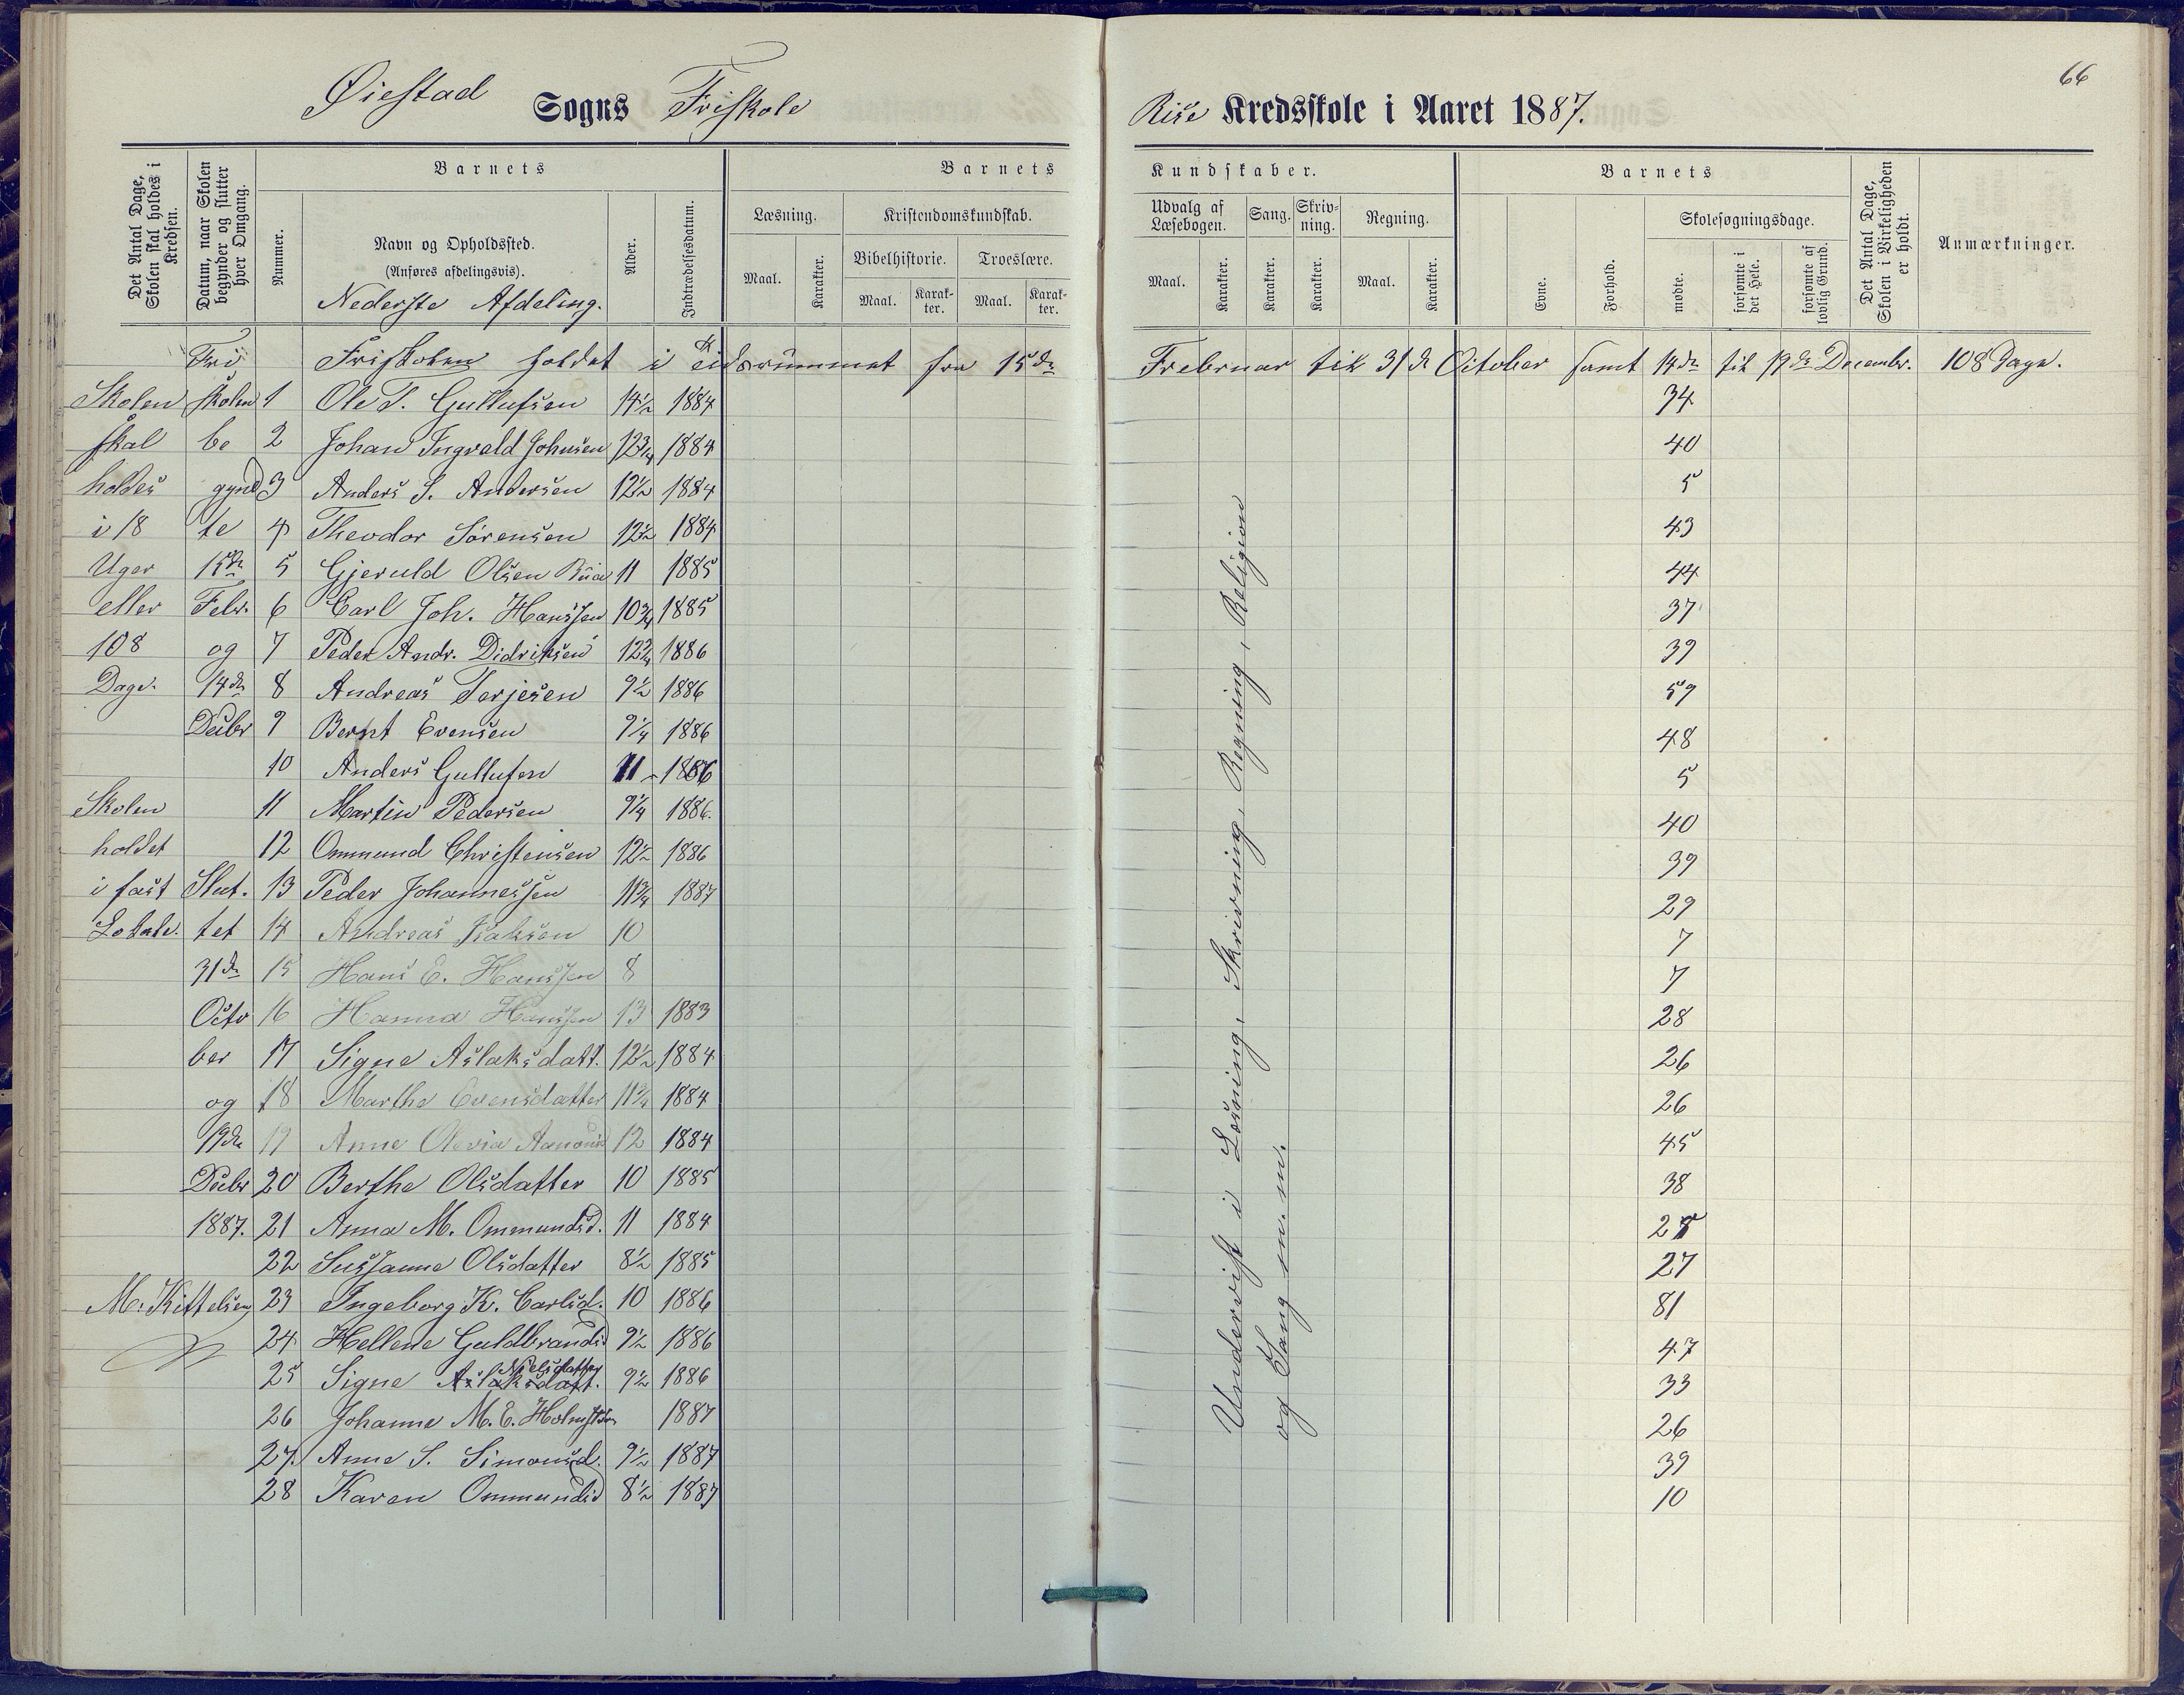 66
Øiestad Sogns Friskole
Rise Kredsskole i Aaret 1887.
Det Antal Dage, Skolen skal holdes i Kredsen.
Datum, naar Skolen begynder og slutter hver Omgang.
Barnets
Nummer.
Navn og Opholdssted.
(Anføres afdelingsvis).
Nederste Afdeling.
Alder.
Indtrædelsesdatum.
Barnets Kundskaber.
Læsning.
Maal.
Karakter.
Kristendomskundskab.
Bibelhistorie.
Maal.
Karakter.
Troeslære.
Maal.
Karakter.
Udvalg af Læsebogen.
Maal.
Karakter.
Sang.
Karakter.
Skrivning.
Karakter.
Regning.
Maal.
Karakter.
Barnets
Evne.
Forhold.
Skolesøgningsdage.
mødte.
forsømte i det Hele.
forsømte af lovlig Grund.
Det Antal Dage, Skolen i Virkeligheden er holdt.
Anmærkninger.
Fri Friskolen holdet i Tidsrummet fra 15de Februar til 31te October samt 14de til 19de Decembr. 108 Dage.
Skolen skolen 1 Ole T. Gullufsen 14½ 1884 34
skal be 2 Johan Ingvald Johnsen 12¾ 1884 40
holdes gynd 3 Anders S. Andersen 12½ 1884 5
i 18 te 4 Theodor Sørensen 12½ 1884 43
Uger 15de 5 Gjeruld Olsen 11 1885 44
eller Febr. 6 Carl Joh. Hanssen 10¾ 1885 37
108 og 7 Peder Andr. Didriksen 12¾ 1886 39
Dage. 14de 8 Andreas Terjesen 9½ 1886 59
Decbr 9 Bernt Evensen 9¼ 1886 48
10 Anders Gullufsen 11 - 1886 5
Skolen 11 Martin Pedersen 9¼ 1886. 40
holdet 12 Ommund Christensen 12½ 1886 39
i fast Slut. 13 Peder Johannessen 11¾ 1887 29
Lokale. tet 14 Andreas Isaksen 10 7
31te 15 Hans E. Hanssen 8 7
Octo 16 Hanna Hanssen 13 1883 28
ber 17 Signe Aslaksdatt. 12½ 1884 26
og 18 Marthe Evensdatter 11¾ 1884 26
19de 19 Anne Olevia 12 1884 45
Decbr 20 Berthe Olsdatter 10 1885 38
1887. 21 Anna M. Ommundsd. 11 1884 28
22 Sussanne Olsdatter 8½ 1885 27
M. Kittelsen 23 Ingeborg K. Carlsd. 10 1886 81
24 Hellene Guldbrandsd 9½ 1886 47
25 Signe Aslaksdatt. Nielsdatter 9½ 1886 33
26 Johanne M. E. 1887 26
27. Anne S. Simonsd. 9½ 1887 39
28 Karen Ommundsd 8½ 1887 10
Undervist i Læsning, Skrivning, Regning, Religion
og Sang m. m.